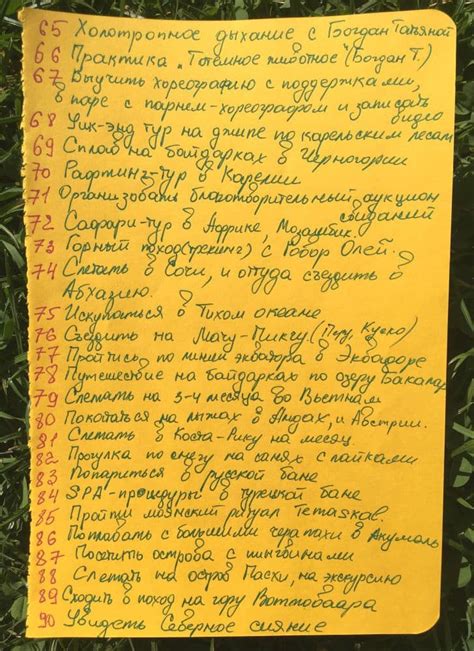 65 Холотропное дыхание с Богдан Татьяной
66 Практика „Тотемное животное" (Богдан Т.)
67 Выучить хореографию с поддержками,
в паре с парнем-хореографом и записать
видео
68 Уик-энд тур на джипе по карельским лесам
69 Сплав на байдарках в Черногории
70 Рафтинг-тур в Карелии
71 Организовать благотворительный аукцион
свиданий
72 Сафари-тур в Африке, Мозамбик.
73 Горный поход (трекинг) с Олей.
74 Слетать в Сочи, и оттуда съездить в
Абхазию.
75 Искупаться в Тихом океане
76 Съездить на Мачу-Пикчу. (Перу, Куско)
77 Пройтись по линии экватора в Эквадоре
78 Путешествие на байдарках по озеру
79 Слетать на 3-4 месяца во Вьетнам
80 Покататься на лыжах в Андах, и Австрии.
81 Слетать в Коста-Рику на месяц.
82 Прогулка по снегу на санях с хайками
83 Попариться в русской бане
84 SPA-процедуры в турецкой бане
85 Пройти маянский ритуал Temaskal.
86 Поплавать с большими черепахи в Акумаль
87 Посетить острова с пингвинами
88 Слетать на остров Пасхи, на экскурсию
89 Сходить в поход на гору
90 Увидеть Северное сияние